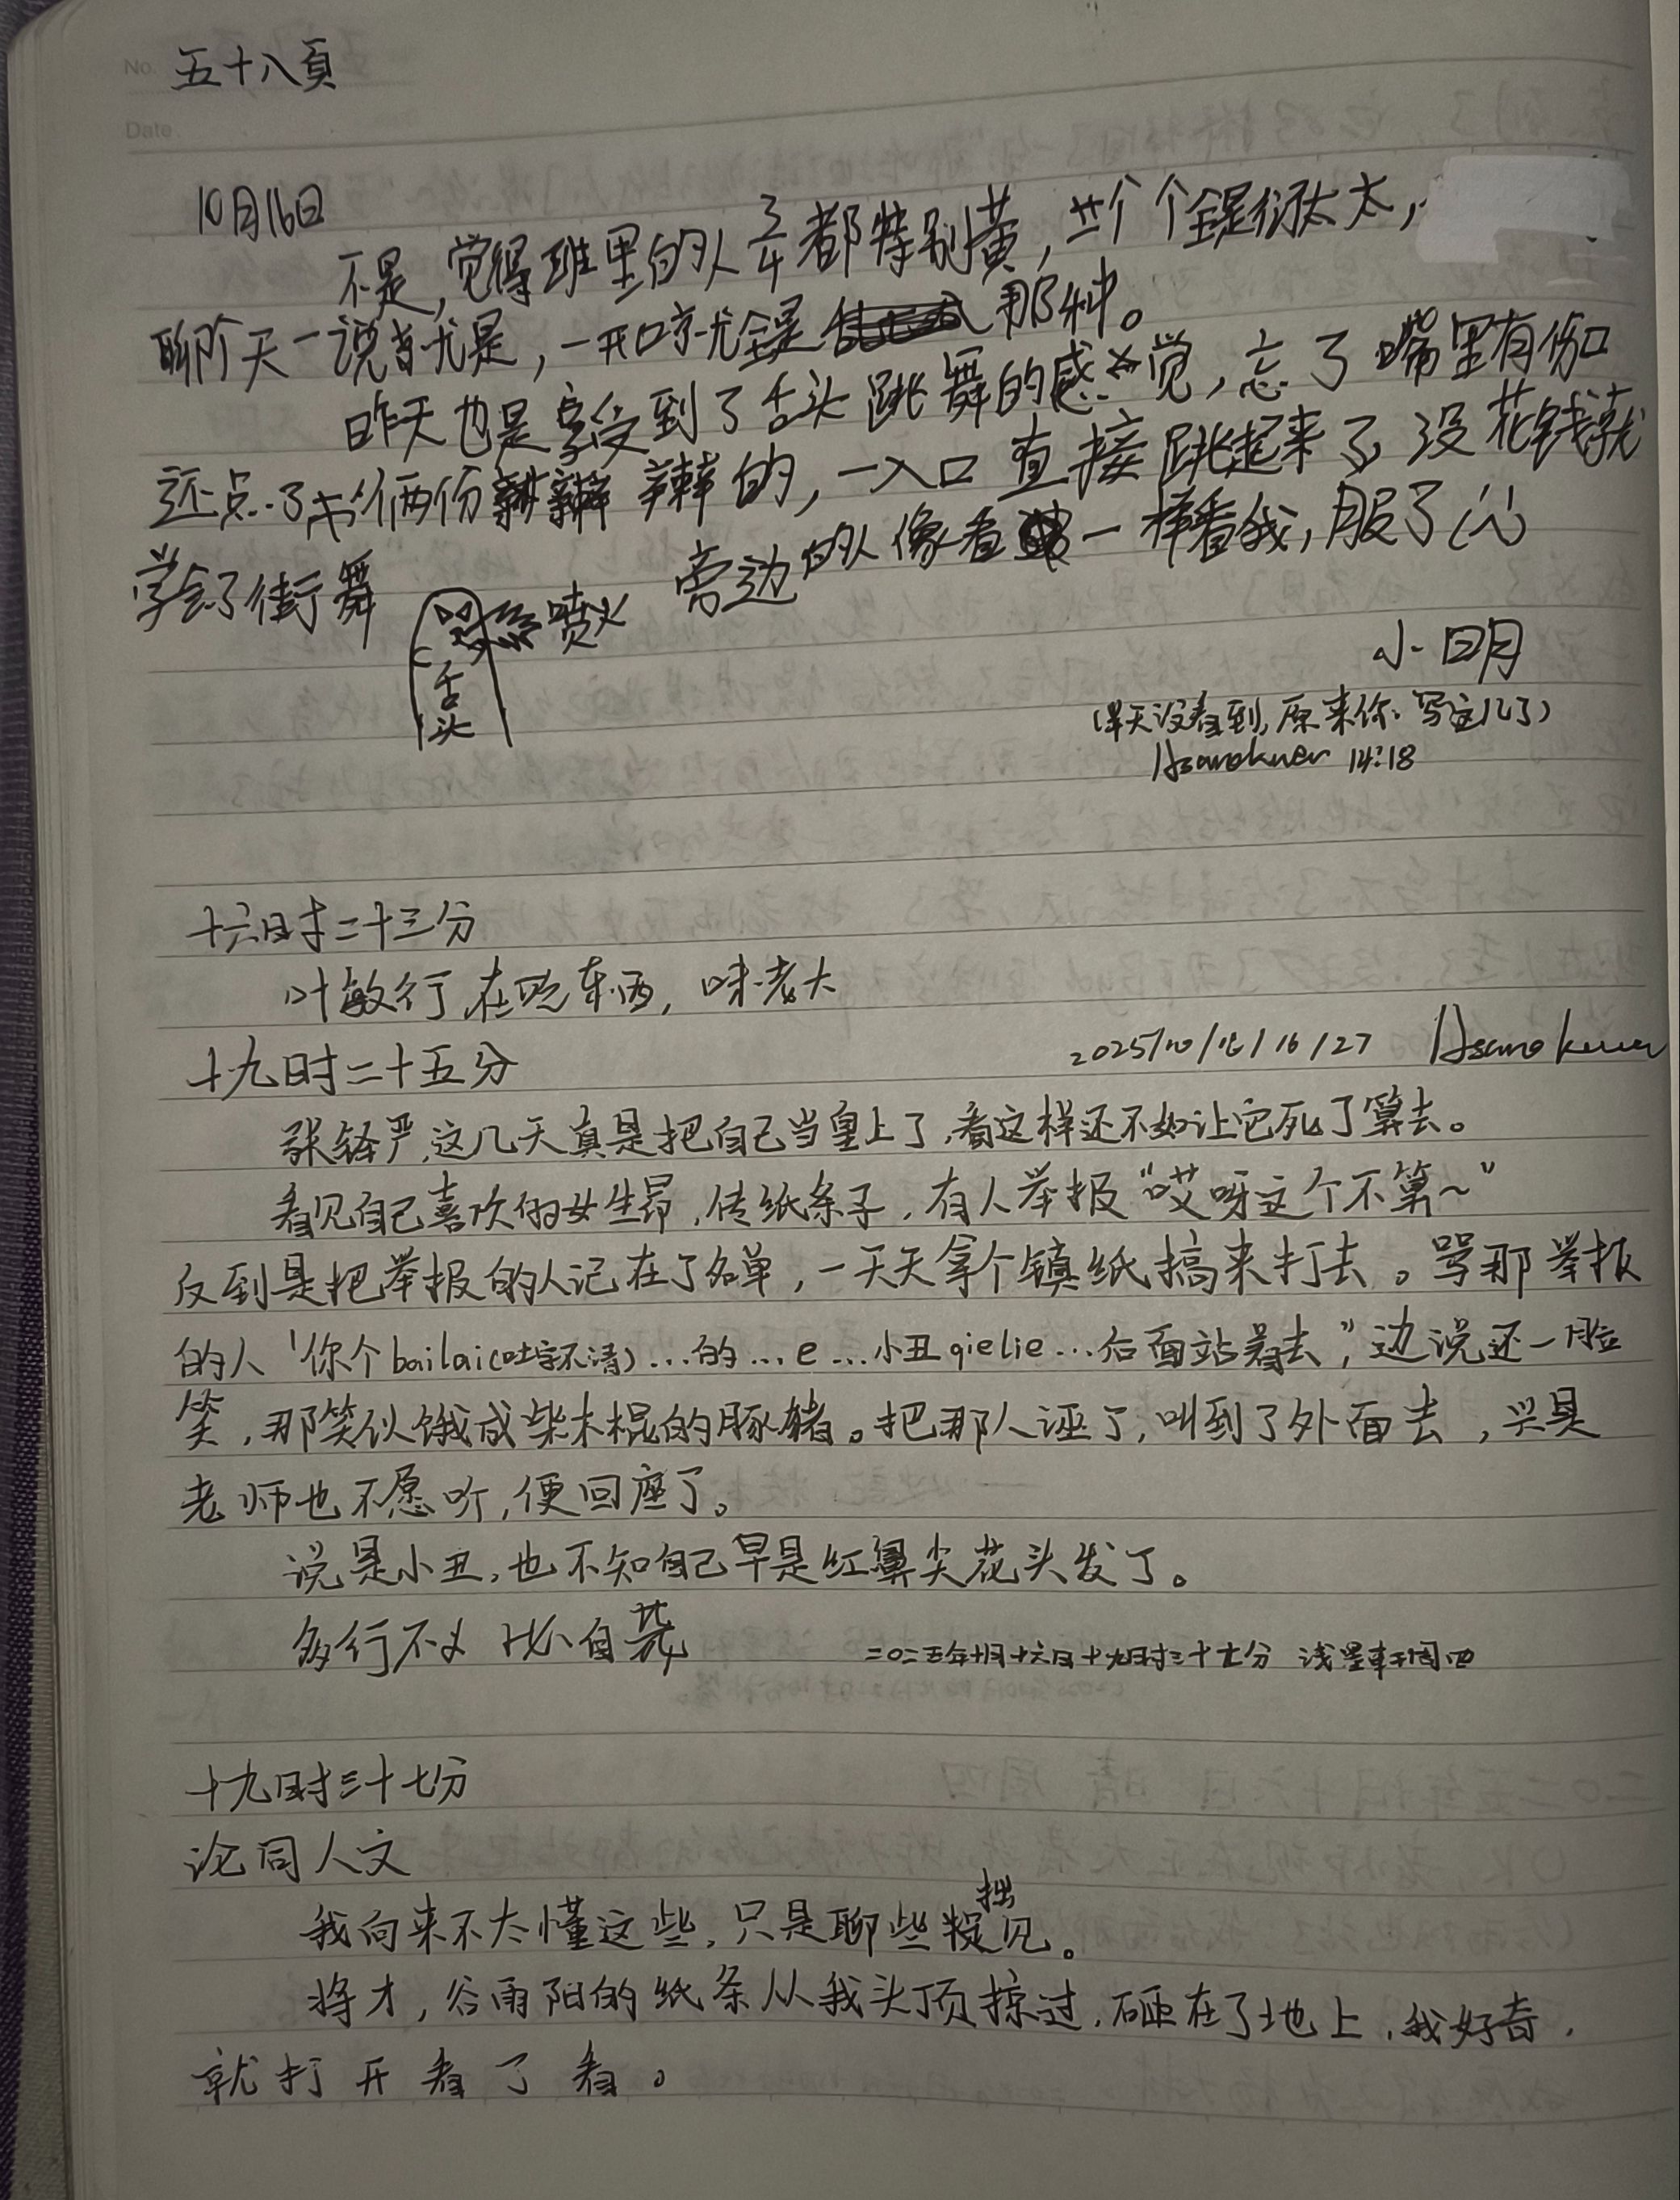 No. 五十八頁
Date
10月16日
不是,觉得班里的人3/4都特别黄,一个个全是衍太太,
聊个天一说就是,一开口就全是 那种。
昨天也是享受到了舌头跳舞的感觉,忘了嘴里有伤口
还点了 俩份 辣的,一入口直接跳起来了,没花钱就
学会了街舞 旁边的人像看 一样看我,服了
喷火
舌头
小明
(早天没看到,原来你写这儿了)
Asanokuer 14:18
十六时二十三分
叶敏行,在吃东西,味老大
2025/10/16/16/27 Asanokuer
十九时二十五分
张铎严,这几天真是把自己当皇上了,看这样还不如让它死了算去。
看见自己喜欢的女生昂,传纸条子,有人举报“哎呀这个不算~”
反到是把举报的人记在了名单,一天天拿个镇纸搞来打去。骂那举报
的人“你个bailai(吐字不清)…的…e…小丑qielie…后面站着去”,边说还一脸
笑,那笑似饿成柴木棍的豚猪。把那人诬了,叫到了外面去,兴是
老师也不愿听,便回座了。
说是小丑,也不知自己早是红鼻尖花头发了。
多行不义 必自毙
二〇二五年十月十六日十九时三十七分 浅墨轩周四
十九时三十七分
论同人文
我向来不太懂这些,只是聊些拙见。
将才,谷雨阳的纸条从我头顶掠过,砸在了地上,我好奇,
就打开看了看。